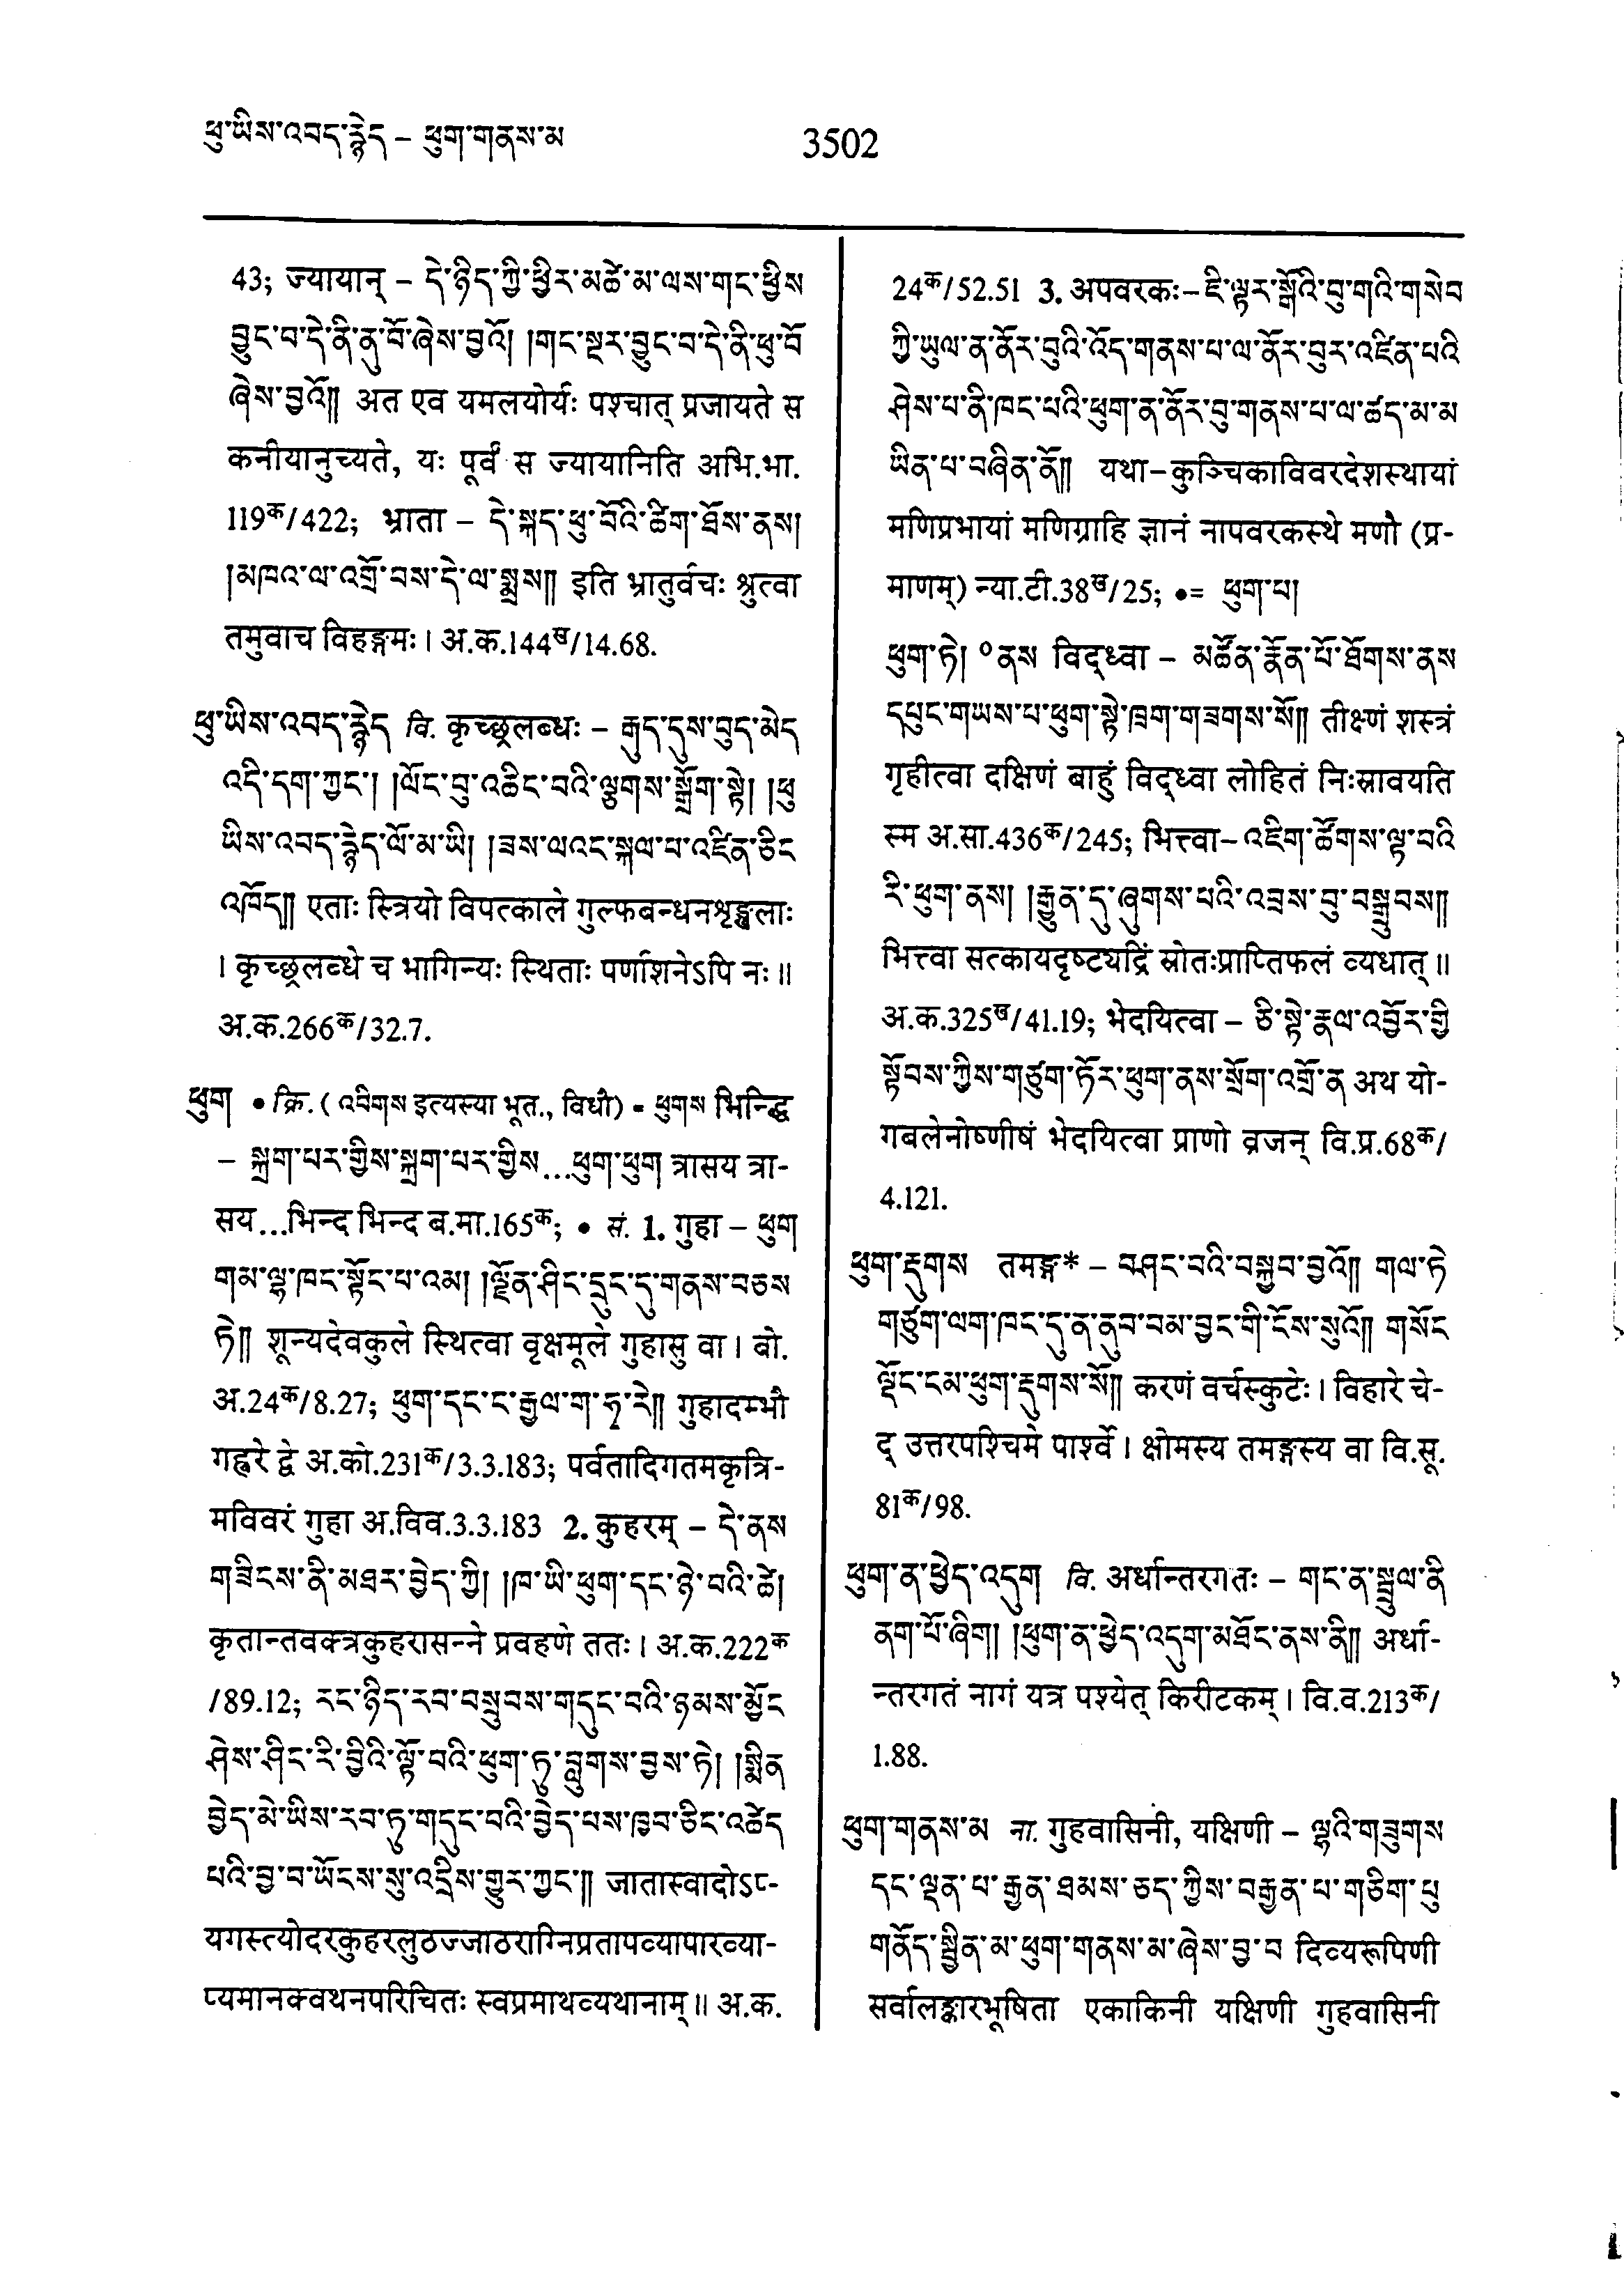 ཕུ་ཡིས་འབད་རྙེད – ཕུག་གནས་མ
3502
43; ज्यायान् – དེ་ཉིད་ཀྱི་ཕྱིར་མཚེ་མ་ལས་གང་ཕྱིས
བྱུང་བ་དེ་ནི་ནུ་བོ་ཞེས་བྱའོ། །གང་སྔར་བྱུང་བ་དེ་ནི་ཕུ་བོ
ཞེས་བྱའོ༎ अत एव यमलयोर्यः पश्चात् प्रजायते स
कनीयानुच्यते, यः पूर्वं स ज्यायानिति अभि.भा.
119क/422; भ्राता – དེ་སྐད་ཕུ་བོའི་ཚིག་ཐོས་ནས།
།མཁའ་ལ་འགྲོ་བས་དེ་ལ་སྨྲས༎ इति भ्रातुर्वचः श्रुत्वा
तमुवाच विहङ्गमः । अ.क.144ख/14.68.
ཕུ་ཡིས་འབད་རྙེད वि. कृच्छ्रलब्धः – རྒུད་དུས་བུད་མེད
འདི་དག་ཀྱང་། །ལོང་བུ་འཆིང་བའི་ལྕགས་སྒྲོག་སྟེ། །ཕུ
ཡིས་འབད་རྙེད་ལོ་མ་ཡི། །ཟས་ལའང་སྐལ་པ་འཛིན་ཅིང
འཁོད༎ एताः स्त्रियो विपत्काले गुल्फबन्धनशृङ्खलाः
। कृच्छ्रलब्धे च भागिन्यः स्थिताः पर्णाशनेऽपि नः ॥
अ.क.266क/32.7.
ཕུག • क्रि. ( འབིགས इत्यस्या भूत., विधौ) = ཕུགས भिन्द्धि
– སྐྲག་པར་གྱིས་སྐྲག་པར་གྱིས...ཕུག་ཕུག त्रासय त्रा-
सय...भिन्द भिन्द ब.मा.165क; • सं. 1. गुहा – ཕུག
གམ་ལྷ་ཁང་སྟོང་པ་འམ། །ལྗོན་ཤིང་དྲུང་དུ་གནས་བཅས
ཏེ༎ शून्यदेवकुले स्थित्वा वृक्षमूले गुहासु वा । बो.
अ.24क/8.27; ཕུག་དང་ང་རྒྱལ་ག་ཧྭ་རེ༎ गुहादम्भौ
गह्वरे द्वे अ.को.231क/3.3.183; पर्वतादिगतमकृत्रि-
मविवरं गुहा अ.विव.3.3.183 2. कुहरम् – དེ་ནས
གཟིངས་ནི་མཐར་བྱེད་ཀྱི། །ཁ་ཡི་ཕུག་དང་ཉེ་བའི་ཚེ།
कृतान्तवक्त्रकुहरासन्ने प्रवहणे ततः । अ.क.222क
/89.12; རང་ཉིད་རབ་བསྲུབས་གདུང་བའི་ཉམས་མྱོང
ཤེས་ཤིང་རི་བྱིའི་ལྟོ་བའི་ཕུག་ཏུ་བླུགས་བྱས་ཏེ། །སྨིན
བྱེད་མེ་ཡིས་རབ་ཏུ་གདུང་བའི་བྱེད་པས་ཁྱབ་ཅིང་འཚེད
པའི་བྱ་བ་ཡོངས་སུ་འདྲིས་གྱུར་ཀྱང་༎ जातास्वादोऽप्-
यगस्त्योदरकुहरलुठज्जाठराग्निप्रतापव्यापारव्या-
प्यमानक्वथनपरिचितः स्वप्रमाथव्यथानाम् ॥ अ.क.
24क/52.51 3. अपवरकः– ཇི་ལྟར་སྒོའི་བུ་གའི་གསེབ
ཀྱི་ཡུལ་ན་ནོར་བུའི་འོད་གནས་པ་ལ་ནོར་བུར་འཛིན་པའི
ཤེས་པ་ནི་ཁང་པའི་ཕུག་ན་ནོར་བུ་གནས་པ་ལ་ཚད་མ་མ
ཡིན་པ་བཞིན་ནོ༎ यथा–कुञ्चिकाविवरदेशस्थायां
मणिप्रभायां मणिग्राहि ज्ञानं नापवरकस्थे मणौ (प्र-
माणम्) न्या.टी.38ख/25; •= ཕུག་པ།
ཕུག་ཏེ། °ནས विद्ध्वा – མཚོན་རྣོན་པོ་ཐོགས་ནས
དཔུང་གཡས་པ་ཕུག་སྟེ་ཁྲག་གཟགས་སོ༎ तीक्ष्णं शस्त्रं
गृहीत्वा दक्षिणं बाहुं विद्ध्वा लोहितं निःस्रावयति
स्म अ.सा.436क/245; भित्त्वा– འཇིག་ཚོགས་ལྟ་བའི
རི་ཕུག་ནས། །རྒྱུན་དུ་ཞུགས་པའི་འབྲས་བུ་བསྒྲུབས༎
भित्त्वा सत्कायदृष्ट्यद्रिं स्रोतःप्राप्तिफलं व्यधात् ॥
अ.क.325ख/41.19; भेदयित्वा – ཅི་སྟེ་རྣལ་འབྱོར་གྱི
སྟོབས་ཀྱིས་གཙུག་ཏོར་ཕུག་ནས་སྲོག་འགྲོ་ན अथ यो-
गबलेनोष्णीषं भेदयित्वा प्राणो व्रजन् वि.प्र.68क/
4.121.
ཕུག་རྡུགས तमङ्ग* – བཤང་བའི་བསྐྱབ་བྱའོ༎ གལ་ཏེ
གཙུག་ལག་ཁང་དུ་ན་ནུབ་བམ་བྱང་གི་ངོས་སུའོ༎ གསོང
ལྡོང་ངམ་ཕུག་རྡུགས་སོ༎ करणं वर्चस्कुटेः । विहारे चे-
द् उत्तरपश्चिमे पार्श्वे । क्षोमस्य तमङ्गस्य वा वि.सू.
81क/98.
ཕུག་ན་ཕྱེད་འདུག वि. अर्धान्तरगतः – གང་ན་སྦྲུལ་ནི
ནག་པོ་ཞིག། །ཕུག་ན་ཕྱེད་འདུག་མཐོང་ནས་ནི༎ अर्धा-
न्तरगतं नागं यत्र पश्येत् किरीटकम् । वि.व.213क/
1.88.
ཕུག་གནས་མ ना. गुहवासिनी, यक्षिणी – ལྷའི་གཟུགས
དང་ལྡན་པ་རྒྱན་ཐམས་ཅད་ཀྱིས་བརྒྱན་པ་གཅིག་པུ
གནོད་སྦྱིན་མ་ཕུག་གནས་མ་ཞེས་བྱ་བ दिव्यरूपिणी
सर्वालङ्कारभूषिता एकाकिनी यक्षिणी गुहवासिनी